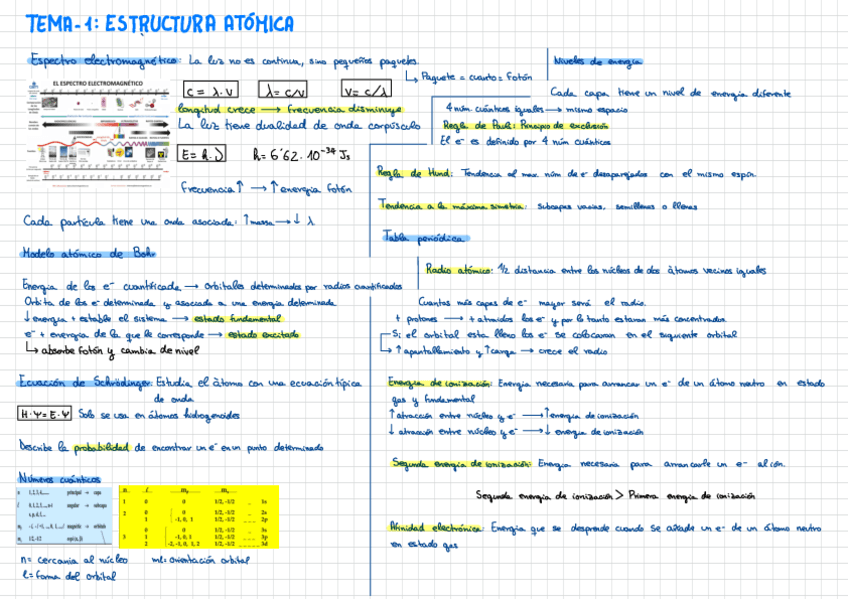 TEMA-1: ESTRUCTURA ATÓMICA
Espectro electromagnético: La luz no es continua, sino pequeños paquetes.
↳ Paquete = cuanto = Fotón
EL ESPECTRO ELECTROMAGNÉTICO
C = λ·ν
λ = c/ν
ν = c/λ
longitud crece → frecuencia disminuye
La luz tiene dualidad de onda corpúsculo
E = h·ν
h = 6'62·10⁻³⁴ Js
Frecuencia ↑ → ↑ energia fotón
Cada partícula tiene una onda asociada: ↑ masa → ↓ λ
Modelo atómico de Bohr
Energía de los e⁻ cuantificada → orbitales determinados por radios cuantificados
Orbita de los e⁻ determinada y asociada a una energia determinada
↓ energia + estable el sistema → estado fundamental
e⁻ + energia de la que le corresponde → estado excitado
↳ absorbe fotón y cambia de nivel
Ecuación de Schrödinger: Estudia el átomo con una ecuación típica
de onda
H·Ψ = E·Ψ Solo se usa en átomos hidrogenoides
Describe la probabilidad de encontrar un e⁻ en un punto determinado
Números cuánticos
n 1,2,3,4,... principal → capa
n l mₗ mₛ
1 0 0 1/2, -1/2 1s
2 0 0 1/2, -1/2 2s
1 -1, 0, 1 1/2, -1/2 2p
0 0 1/2, -1/2 3s
3 1 -1, 0, 1 1/2, -1/2 3p
2 -2, -1, 0, 1, 2 1/2, -1/2 3d
n = cercania al núcleo ml: orientación orbital
l = forma del orbital
Niveles de energía
Cada capa tiene un nivel de energia diferente
4 núm. cuánticos iguales → mismo espacio
Regla de Pauli: Principio de exclusión
El e⁻ es definido por 4 núm cuánticos
Regla de Hund: Tendencia al max. núm de e⁻ desaparejados con el mismo espín.
Tendencia a la máxima simetria: subcapas vacias, semillenas o llenas
Tabla periódica
Radio atómico: 1/2 distancia entre los núcleos de dos átomos vecinos iguales
Cuantas más capas de e⁻ mayor será el radio.
+ protones → + atraidos los e⁻ y por lo tanto estaran más concentrados
Si el orbital esta lleno los e⁻ se colocaran en el siguiente orbital
↳ ↑ apantallamiento y ↑ carga → crece el radio
Energia de ionización: Energia necesaria para arrancar un e⁻ de un átomo neutro en estado
gas y fundamental
↑ atracción entre núcleo y e⁻ → ↑ energia de ionización
↓ atracción entre núcleo y e⁻ → ↓ energia de ionización
Segunda energia de ionización: Energia necesaria para arrancarle un e⁻ al ión.
Segunda energia de ionización > Primera energia de ionización
Afinidad electrónica: Energia que se desprende cuando se añade un e⁻ de un átomo neutro
en estado gas